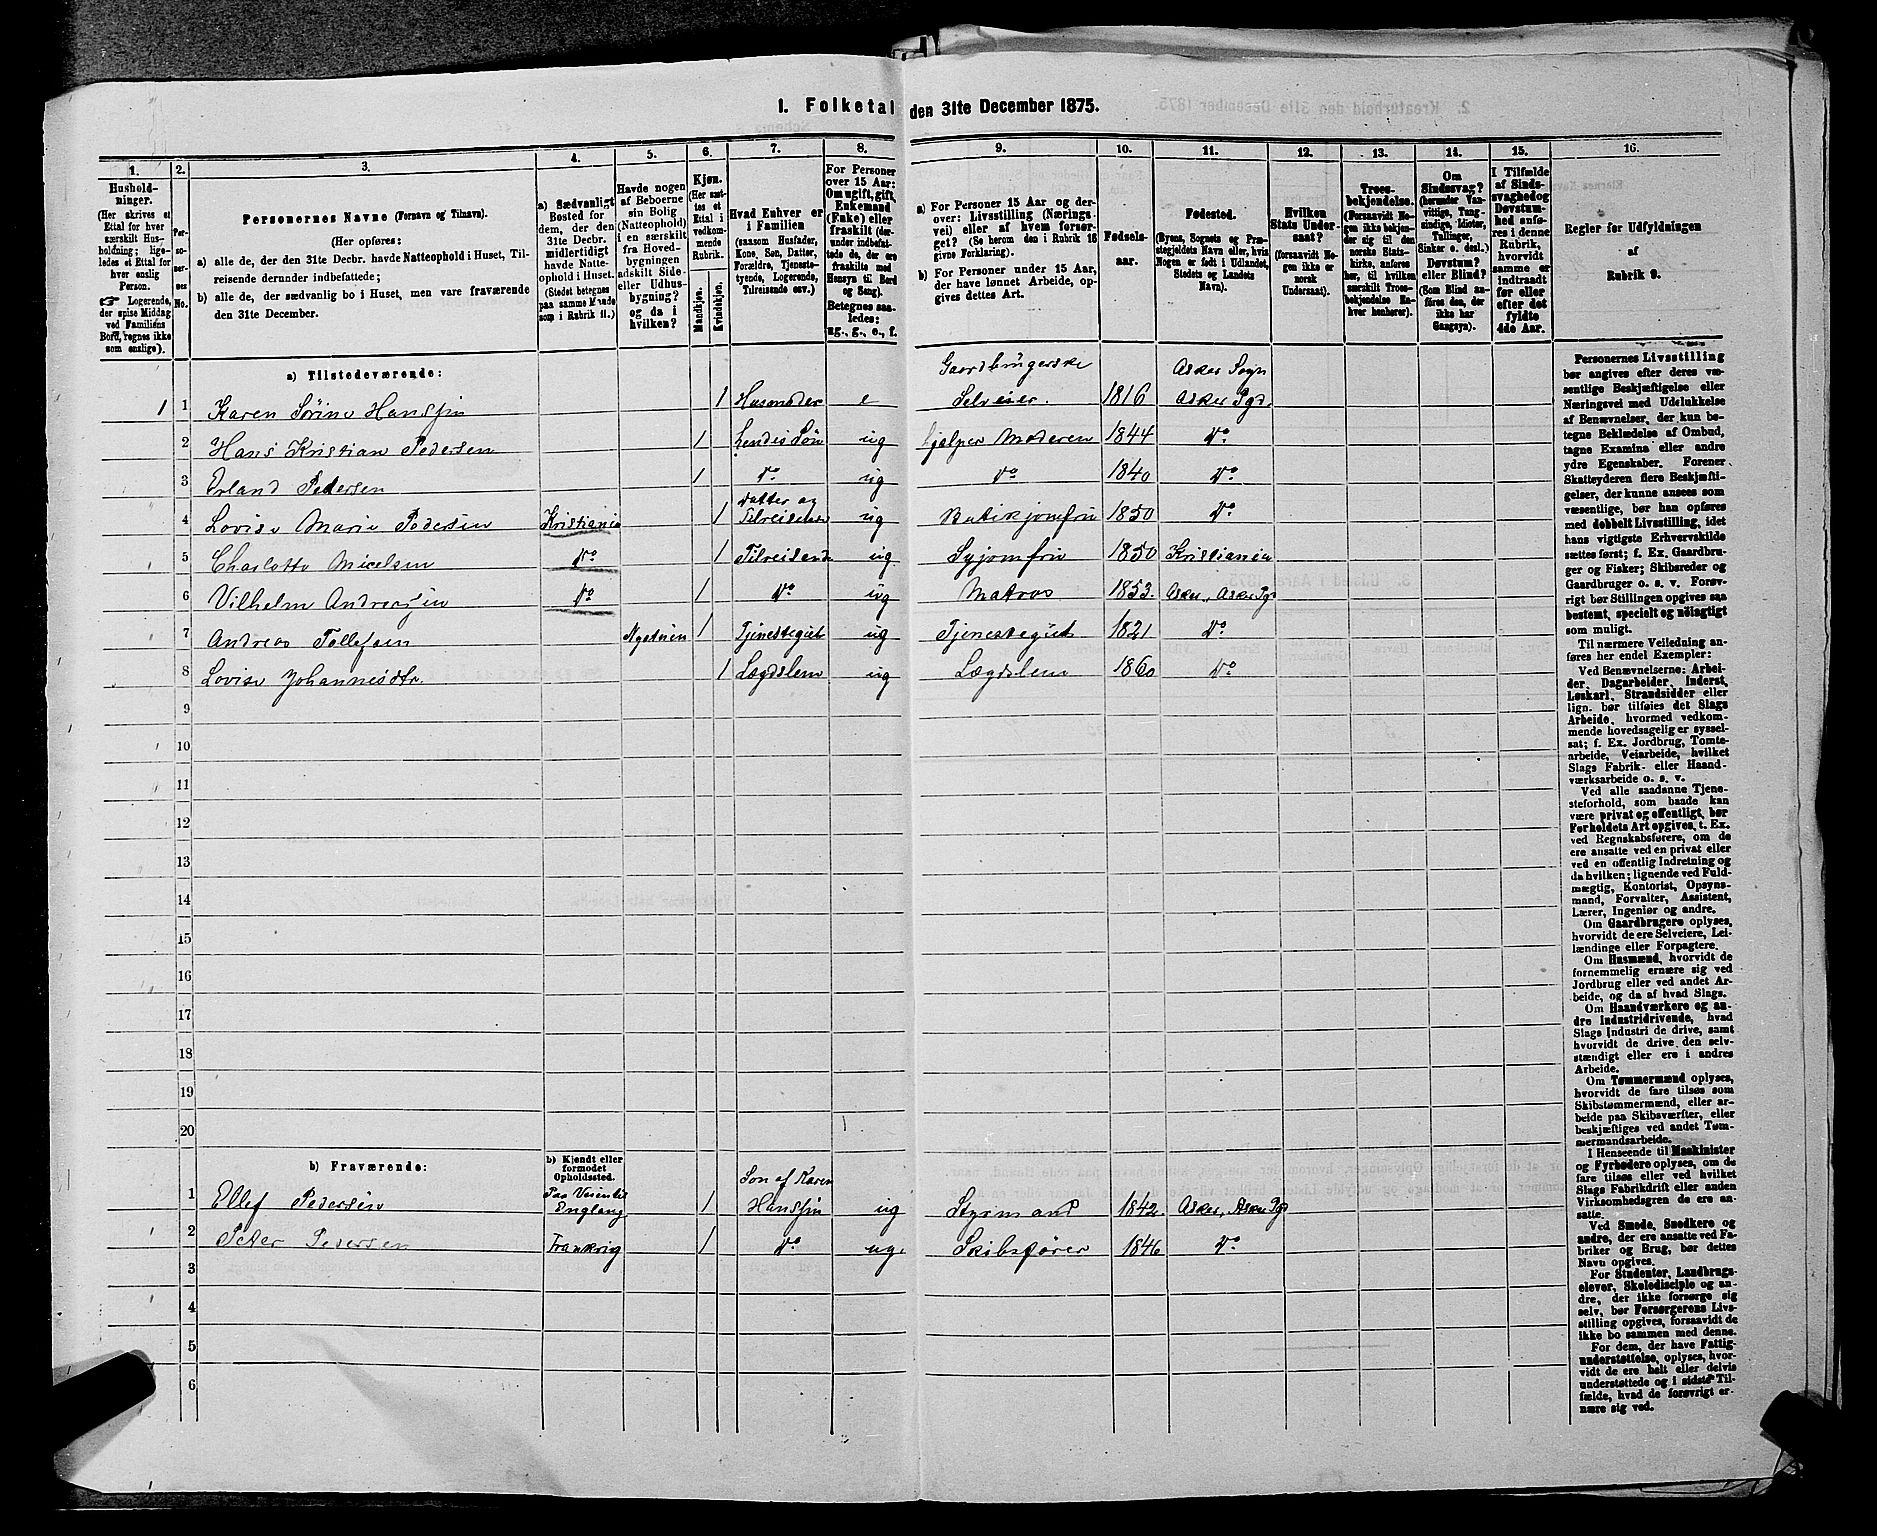 1. Folketal den 31te December 1875.
1. 2. 3. 4. 5. 6. 7. 8. 9. 10. 11. 12. 13. 14. 15. 16.
Hushold-
ninger.
(Her skrives et
Ettal for hver
særskilt Hus-
holdning; lige-
ledes et Ettal for
hver enslig
Person.
☞ Logerende,
der spise Middag
ved Familiens
Bord, regnes ikke
som enslige).
Per-
so-
ner-
nes
No.
Personernes Navne (Fornavn og Tilnavn).
(Her opføres:
a) alle de, der den 31te Decbr. havde Natteophold i Huset, Til-
reisende derunder indbefattede;
b) alle de, der sædvanlig bo i Huset, men vare fraværende
den 31te December.
a) Sædvanligt
Bosted for
dem, der den
31te Decbr.
midlertidigt
havde Natte-
ophold i Huset.
(Stedet betegnes
paa samme Maade
som i Rubrik 11.)
Havde nogen
af Beboerne
sin Bolig
(Natteophold)
i en særskilt
fra Hoved-
bygningen
adskilt Side-
eller Udhus-
bygning?
og da i
hvilken?
Kjøn.
(Her sæt-
tes et
Ettal i
vedkom-
mende
Rubrik.
Mandkjøn.
Kvindekjøn.
Hvad Enhver er
i Familien
(saasom Husfader,
Kone, Søn, Datter,
Forældre, Tjeneste-
tyende, Logerende,
Tilreisende osv.)
For Personer
over 15 Aar:
Om ugift, gift,
Enkemand
(Enke) eller
fraskilt (der-
under indbefat-
tede de, der ere
fraskilte med
Hensyn til Bord
og Seng).
Betegnes saa-
ledes:
ug., g., e., f.
a) For Personer 15 Aar og der-
over: Livsstilling (Nærings-
vei) eller af hvem forsør-
get? (Se herom den i Rubrik 16
givne Forklaring).
b) For Personer under 15 Aar,
der have lønnet Arbeide, op-
gives dettes Art.
Fødsels-
aar.
Fødested.
(Byens, Sognets og Præ-
stegjeldets Navn eller, hvis
Nogen er født i Udlandet,
Stedets og Landets
Navn).
Hvilken
Stats Under-
saat?
(forsaavidt No-
gen ikke er
norsk
Undersaat).
Troes-
bekjendelse.
(Forsaavidt No-
gen ikke bekjen-
der sig til den
norske Stats-
kirke, anføres
her, til hvilken
særskilt Troes-
bekjendelse En-
hver henhører).
Om
Sindssvag?
(herunder Van-
vittige, Tung-
sindige, Idioter,
Tullinger,
Sinker o. desl.)
Døvstum?
eller Blind?
(Som Blind an-
føres den, der
ikke har
Gangsyn).
I Tilfælde
af Sinds-
svaghed og
Døvstum-
hed anfø-
res i denne
Rubrik,
hvorvidt
samme er
indtraadt
før eller
efter det
fyldte
4de Aar.
Regler for Udfyldningen
af
Rubrik 9.
a) Tilstedeværende:
Gaardbrugerske Asker Sogn
1 1 Karen Sørine Hanssen 1 Husmoder e Selveier. 1816 Asker Pgd.
2 Hans Kristian Pedersen 1 hendes Søn ug hjelper Moderen 1844 Do
3 Erland Pedersen 1 Do ug Do 1840 Do
Datter og
4 Lovise Marie Pedersen Kristiania 1 Tilreisende ug Butikjomfru 1850 Do
5 Charlotte Micelsen Do 1 Tilreisende ug Syjomfru 1850 Kristiania
6 Vilhelm Andersen Do 1 Do ug Matros 1853. Asker, Asker Pgd
7 Andreas Tollefsen 1 Tjenestegut ug Tjenestegut 1821 Do
8 Lovise Johannesdtr. 1 Lægdslem ug Lægdslem 1860 Do
9
10
11
12
13
14
15
16
17
18
19
20
b) Fraværende:
b) Kjendt eller
formodet
Opholdssted.
Paa Veien til Søn af Karen
1 Ellef Pedersen England 1 Hanssen ug Styrmand 1842. Asker, Asker Pgd
2 Peter Pedersen Frankrig 1 Do ug. Skibsfører 1846 Do
3
4
5
6
Personernes Livsstilling
bør angives efter deres væ-
sentlige Beskjæftigelse eller
Næringsvei med Udelukkelse
af Benævnelser, der kun be-
tegne Beklædelse af Ombud,
tagne Examina eller andre
ydre Egenskaber. Forener
Skatteyderen flere Beskjæfti-
gelser, der kunne ansees som
væsentlige, bør han opføres
med dobbelt Livsstilling, idet
hans vigtigste Erhvervskilde
sættes først; f. Ex. Gaardbru-
ger og Fisker; Skibsreder og
Gaardbruger o. s. v. Forøv-
rigt bør Stillingen opgives saa
bestemt, specielt og nøiagtigt
som muligt.
Til nærmere Veiledning an-
føres her endel Exempler:
Ved Benævnelserne: Arbei-
der, Dagarbeider, Inderst,
Løskarl, Strandsidder eller
lign. bør tilføies det Slags
Arbeide, hvormed vedkom-
mende hovedsagelig er syssel-
sat; f. Ex. Jordbrug, Tomte-
arbeide, Veiarbeide, hvilket
Slags Fabrik- eller Haand-
værksarbeide o. s. v.
Ved alle saadanne Tjene-
steforhold, som baade kan
være privat og offentligt, bør
Forholdets Art opgives, t. Ex.
ved Regnskabsførere, om de
ere ansatte ved en privat eller
ved en offentlig Indretning og
da hvilken; lignende ved Fuld-
mægtig, Kontorist, Opsyns-
mand, Forvalter, Assistent,
Lærer, Ingeniør og andre.
Om Gaardbrugere oplyses,
hvorvidt de ere Selveiere, Lei-
lændinge eller Forpagtere.
Om Husmænd, hvorvidt de
fornemmelig ernære sig ved
Jordbrug eller ved andet Ar-
beide, og da af hvad Slags.
Om Haandværkere og an-
dre Industridrivende, hvad
Slags Industri de drive, samt
hvorvidt de drive den selv-
stændigt eller ere i andres
Arbeide.
Om Tømmermænd oplyses,
hvorvidt de fare tilsøs som
Skibstømmermænd, eller ar-
beide paa Skibsværfter, eller
beskjæftiges ved andet Tøm-
mermandsarbeide.
I Henseende til Maskinister
og Fyrbødere oplyses, om de
fare tilsøs eller ved hvilket
Slags Fabrikdrift eller anden
Virksomhedsgren de ere an-
satte.
Ved Smede, Snedkere og
andre, der ere ansatte ved Fa-
briker og Brug, bør dettes
Navn opgives.
For Studenter, Landbrugs-
elever, Skoledisciple og an-
dre, der ikke forsørge sig
selv, bør Forsørgerens Livs-
stilling opgives, forsaavidt de
ikke bo sammen med denne.
For dem, der have Fattig-
understøttelse, oplyses, hvor-
vidt de ere helt eller delvis
understøttede og i sidste Til-
fælde, hvad de forøvrigt er-
nære sig ved.